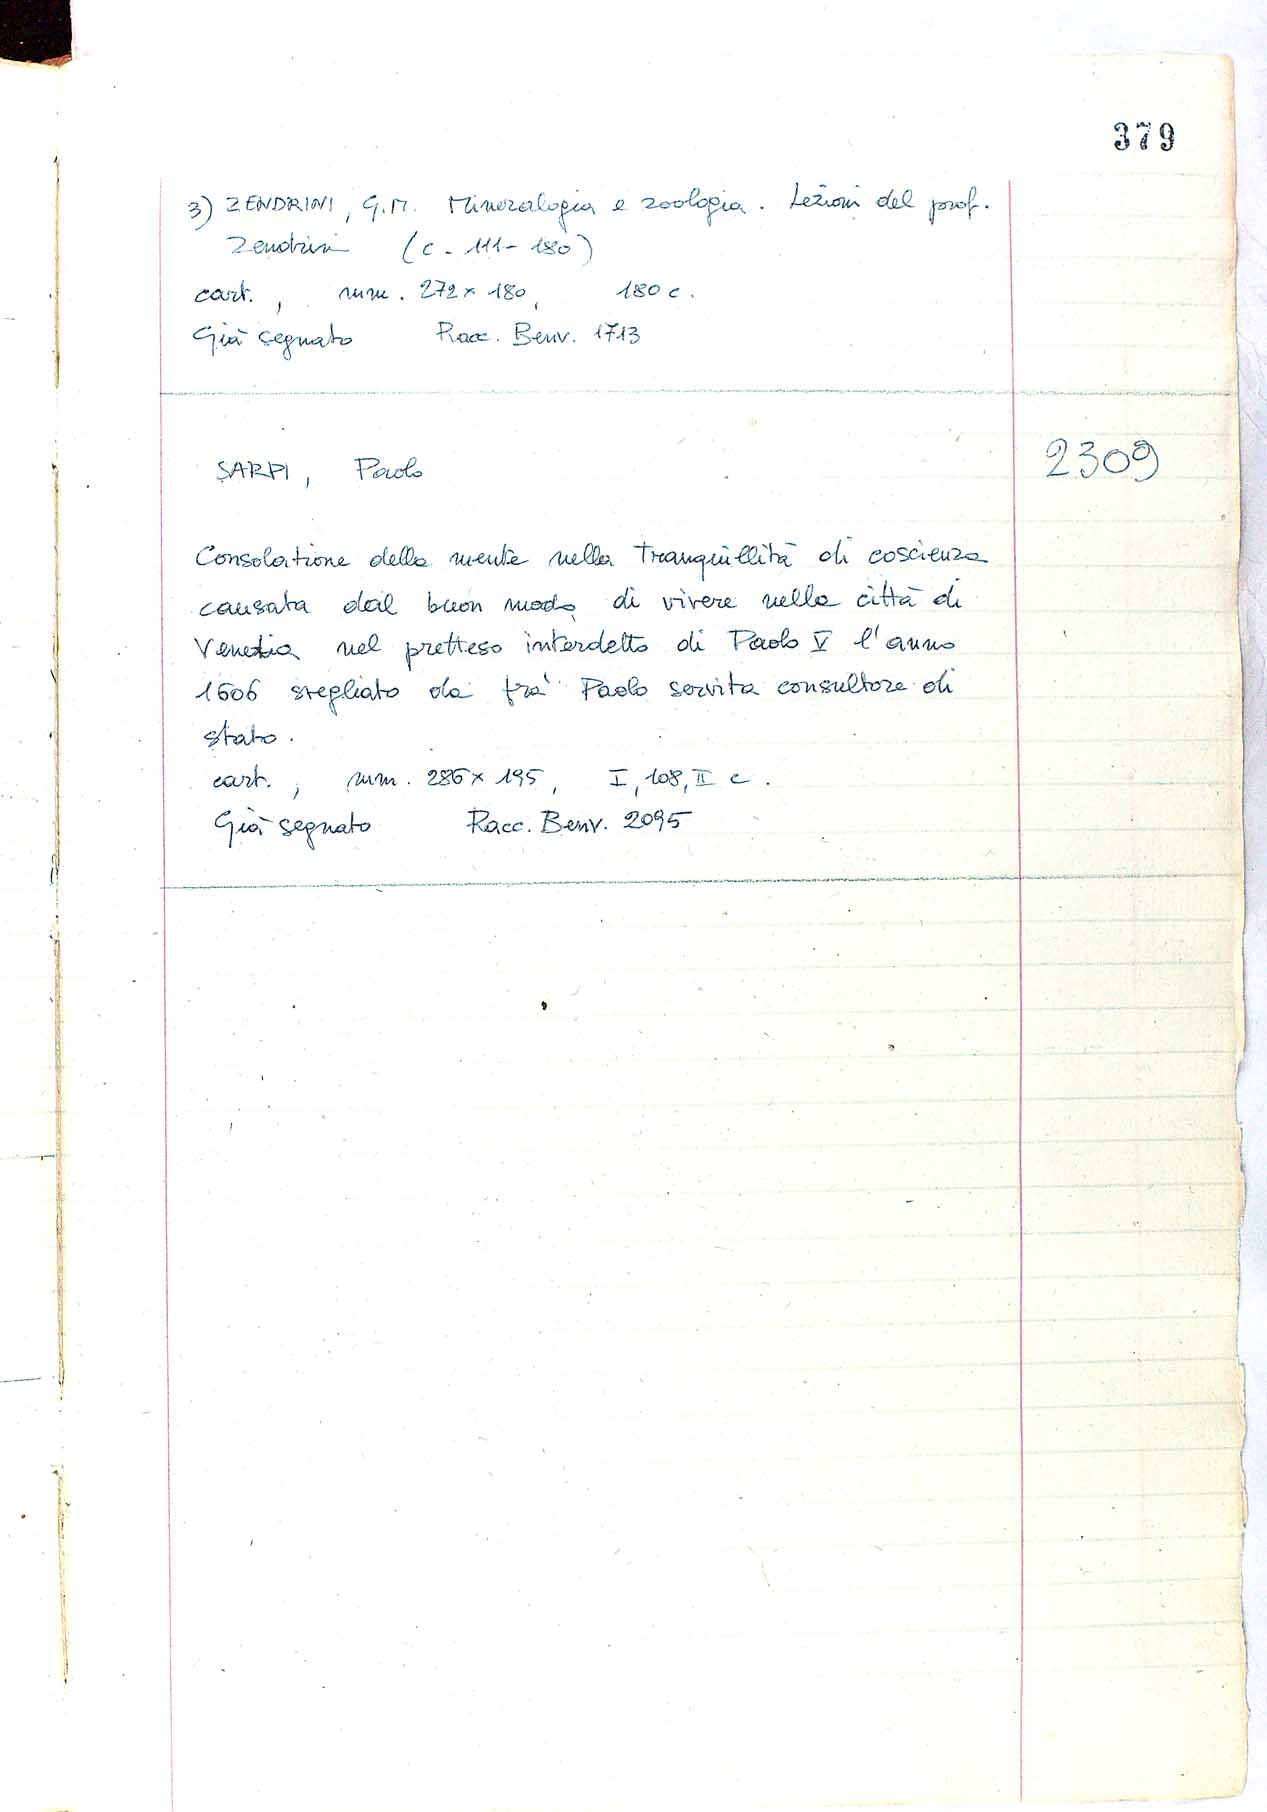 379
3) ZENDRINI, G.M. Mineralogia e zoologia. Lezioni del prof.
Zendrini (c. 111-180)
cart., mm. 272 x 180, 180 c.
Già segnato Racc. Benv. 1713
SARPI, Paolo 2309
Consolatione della mente nella tranquillità di coscienza
causata dal buon modo di vivere nella città di
Venetia nel pretteso interdetto di Paolo V l'anno
1606 stegliato da fra' Paolo servita consultore di
stato.
cart., mm. 286 x 195, I, 108, II c.
Già segnato Racc. Benv. 2095